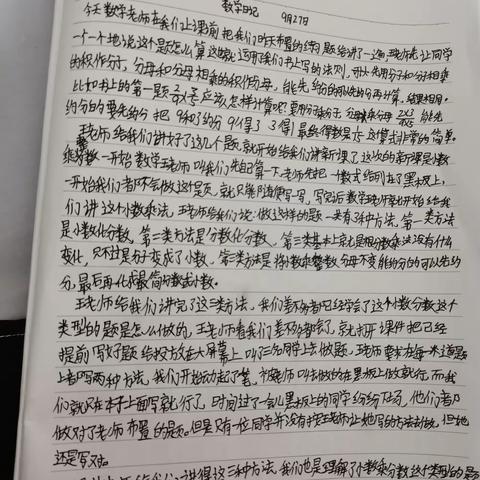 数学日记 9月27日
今天数学老师在我们上课前把我们昨天布置的练习题给讲了一遍，王老师先让同学
一个一个地说这个题怎么算这时就运用了我们书上写的法则，可以先用分子和分子相乘
的积作分子，分母和分母相乘的积作分母，能先约分的可以先约分再计算，结果相同。
比如书上的第一题 应该怎样计算呢？要用分子乘分子 分母乘分母 能先
约分的要先约分 把9和3约分 9得了3 3得1 最后得数是 这算式非常的简单。
王老师给我们讲好了这几个题，就开始给我们讲新课了，这次的新课是小数
乘分数一开始数学王老师叫我们先自己算一下，老师先把一個式给列在了黑板上，
一开始我们者不会做这道题，就只能随便写一写，写完后数学王老师就开始给我
们讲这个小数乘法，王老师给我们说：做这样的题一共有3种方法，第一类方法
是小数化分数，第二类方法是分数化分数，第三类基本上就是跟分数乘法没有什么
变化，只不过是分子变成了小数，第三类方法是将小数乘整数 分母不变能约分的可以先约
分，最后再化成最简分数或小数。
王老师给我们讲完了这三类方法，我们差不多都已经学会了这个小数分数这个
类型的题是怎么做的，王老师看我们差不多都会了，就打开课件把已经
提前写好了题给投放在大屏幕上，叫了三名同学上去做题，王老师要求在每一道题
上都写两种方法，我们开始动起了笔，被老师叫去做的在黑板上做就行，而我
们就只在本子上面写就行了，时间过了一会儿黑板上的同学纷纷下场，他们都
做对了老师布置的题。但是只有一位同学并没有按王老师让她写的方法去做，但她
还是写对。
讲得这三种方法，我们也是理解了小数乘分数这个类型的题